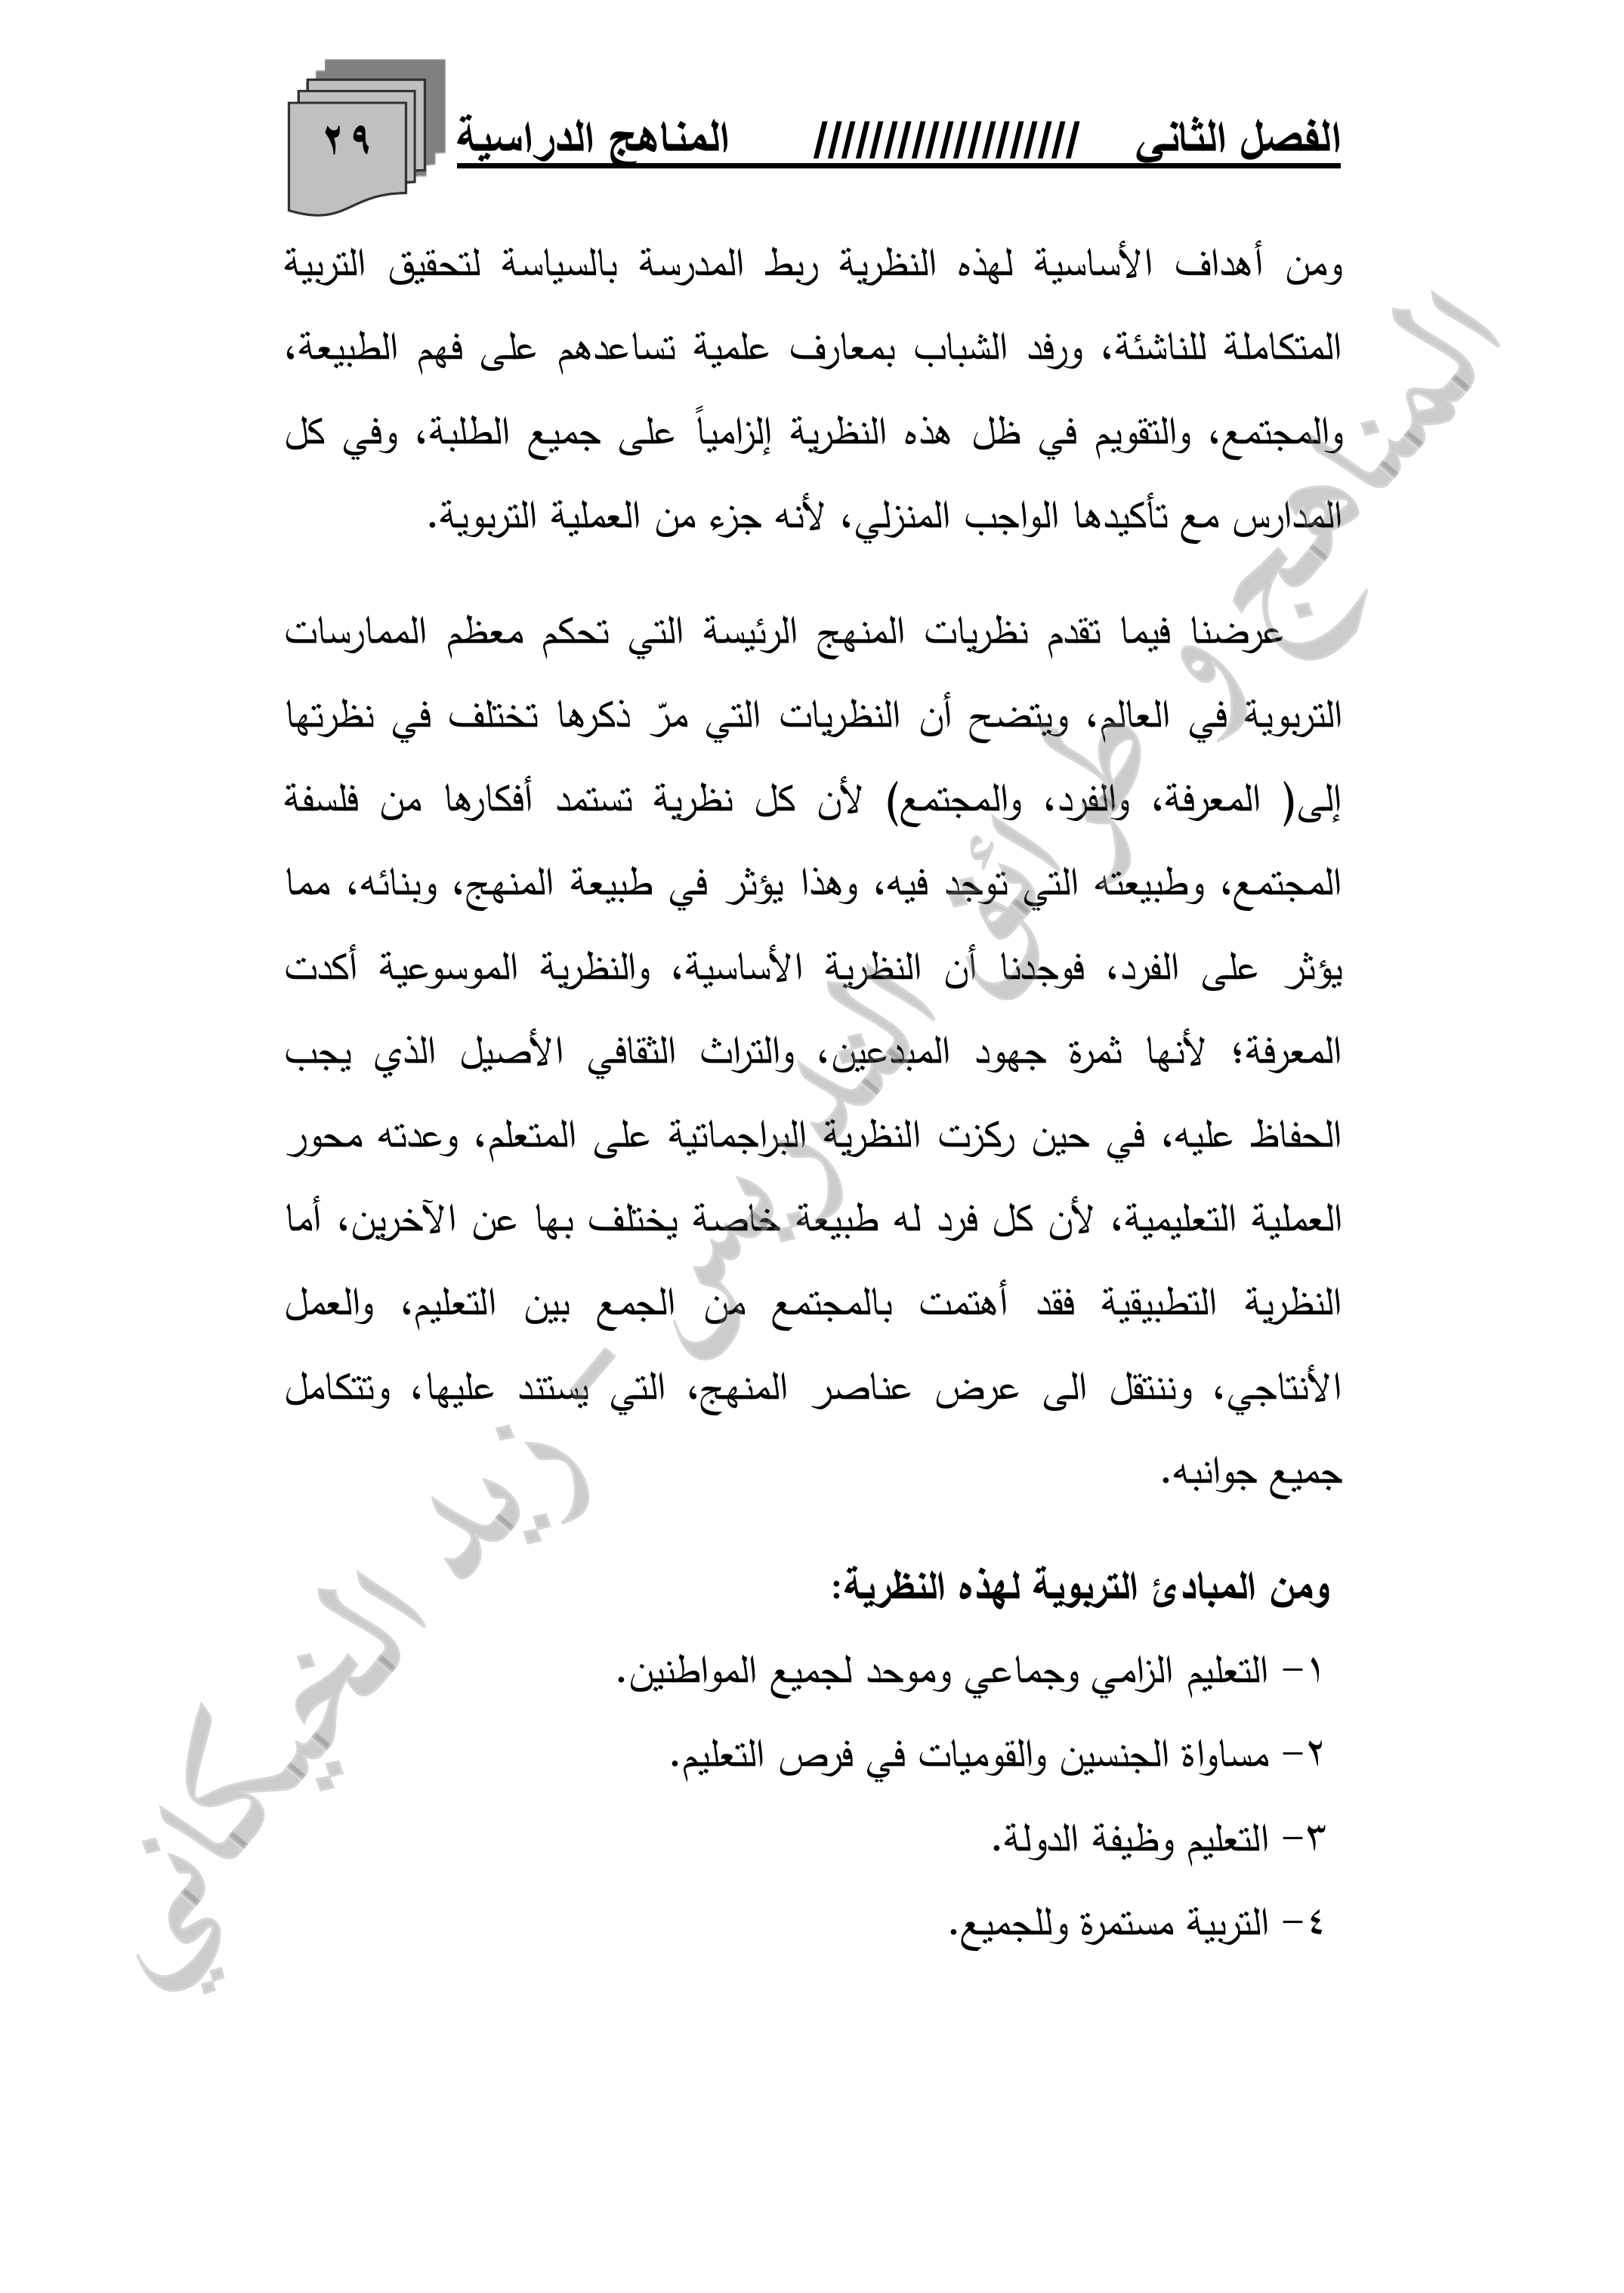 الفصل الثاني /////////////////// المناهج الدراسية ٢٩
ومن أهداف الأساسية لهذه النظرية ربط المدرسة بالسياسة لتحقيق التربية
المتكاملة للناشئة، ورفد الشباب بمعارف علمية تساعدهم على فهم الطبيعة،
والمجتمع، والتقويم في ظل هذه النظرية إلزامياً على جميع الطلبة، وفي كل
المدارس مع تأكيدها الواجب المنزلي، لأنه جزء من العملية التربوية.
عرضنا فيما تقدم نظريات المنهج الرئيسة التي تحكم معظم الممارسات
التربوية في العالم، ويتضح أن النظريات التي مرّ ذكرها تختلف في نظرتها
إلى( المعرفة، والفرد، والمجتمع) لأن كل نظرية تستمد أفكارها من فلسفة
المجتمع، وطبيعته التي توجد فيه، وهذا يؤثر في طبيعة المنهج، وبنائه، مما
يؤثر على الفرد، فوجدنا أن النظرية الأساسية، والنظرية الموسوعية أكدت
المعرفة؛ لأنها ثمرة جهود المبدعين، والتراث الثقافي الأصيل الذي يجب
الحفاظ عليه، في حين ركزت النظرية البراجماتية على المتعلم، وعدته محور
العملية التعليمية، لأن كل فرد له طبيعة خاصة يختلف بها عن الآخرين، أما
النظرية التطبيقية فقد أهتمت بالمجتمع من الجمع بين التعليم، والعمل
الأنتاجي، وننتقل الى عرض عناصر المنهج، التي يستند عليها، وتتكامل
جميع جوانبه.
ومن المبادئ التربوية لهذه النظرية:
١- التعليم الزامي وجماعي وموحد لجميع المواطنين.
٢- مساواة الجنسين والقوميات في فرص التعليم.
٣- التعليم وظيفة الدولة.
٤- التربية مستمرة وللجميع.
المناهج و طرائق التدريس - زيد الخيكاني